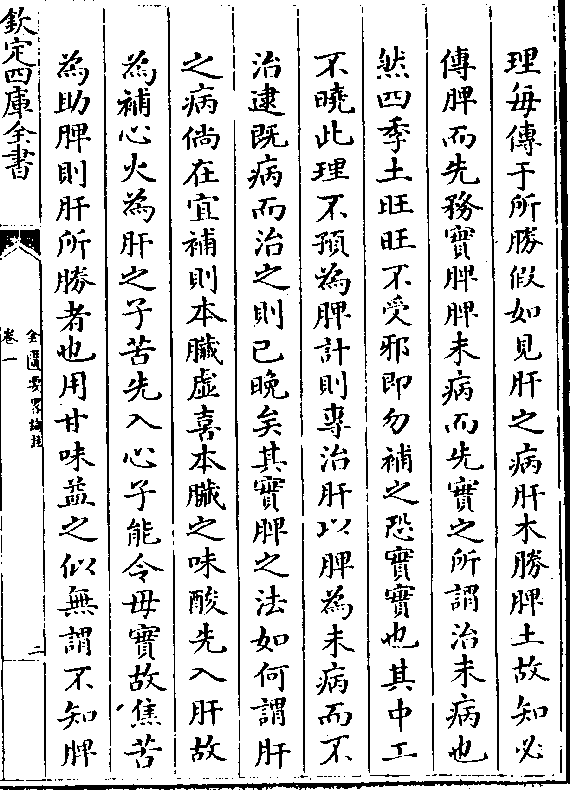 理每傳于所勝假如見肝之病肝木勝脾土故知必
傳脾而先務實脾脾未病而先實之所謂治未病也
然四季土旺旺不受邪即勿補之恐實實也其中工
不曉此理不預為脾計則專治肝以脾為未病而不
治逮既病而治之則已晚矣其實脾之法如何謂肝
之病倘在宜補則本臟虚喜本臟之味酸先入肝故
為補心火為肝之子苦先入心子能令母實故焦苦
為助脾則肝所勝者也用甘味益之似無謂不知脾
欽定四庫全書
金匱要畧論註
卷一
二